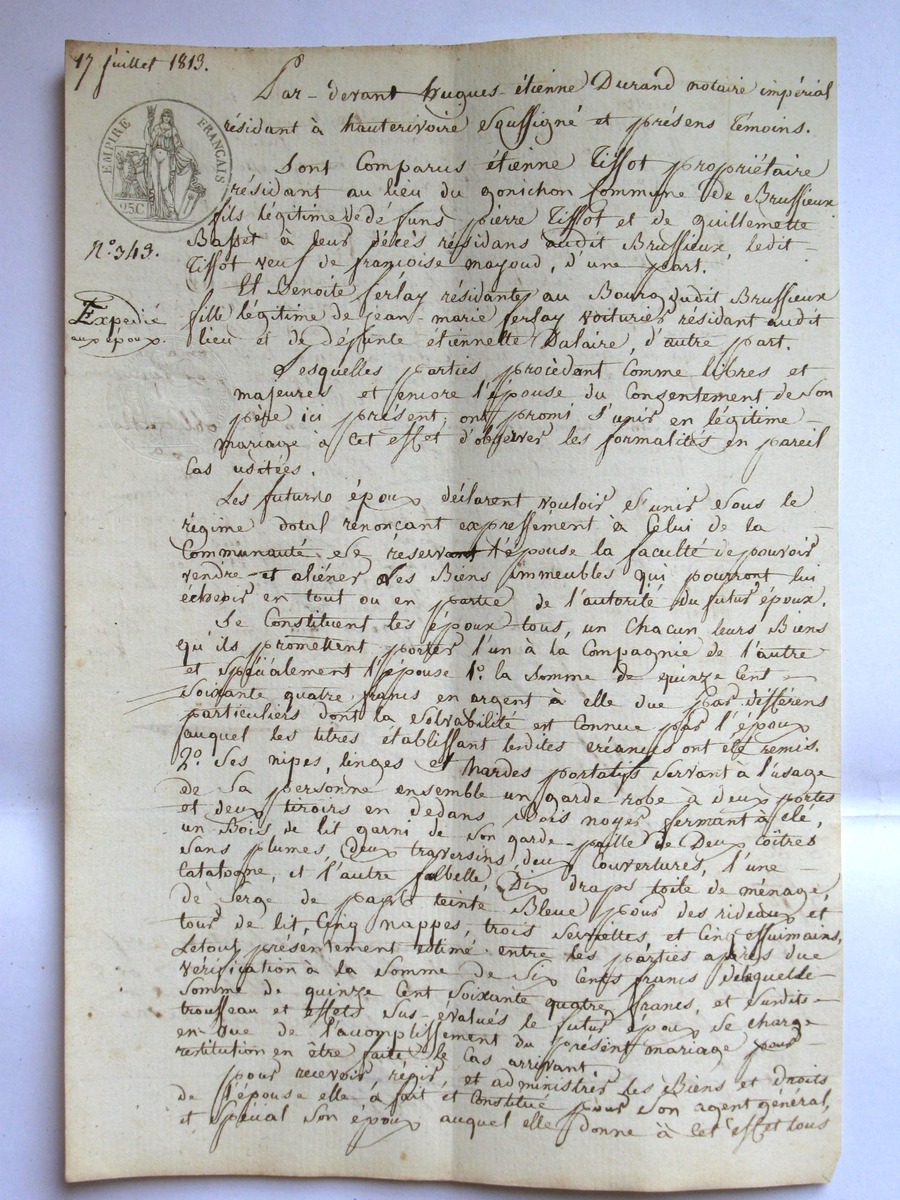 17 juillet 1813.
Par-devant hugues étienne Durand notaire impérial
EMPIRE FRANÇAIS
résidant à hauterivoire soussigné et présens témoins.
25C
Sont Comparus étienne Tissot propriétaire
résidant au lieu du gonichon Commune de Brussieux
fils légitime de défuns pierre Tissot et de guillemette
Basset à leur décès résidans audit Brussieux ledit
N.º 343.
Tissot veuf de françoise mayoud, d'une part.
Et Benoite ferlay résidante au Bourg dudit Brussieux
Expédié
aux époux.
fille légitime de jean-marie ferlay voiturier résidant audit
lieu et de défunte étiennette Dalaire, d'autre part.
Lesquelles parties procèdant Comme libres et
majeures et encore l'épouse du Consentement de son
père ici présent, ont promi s'unir en légitime
mariage a cet effet d'observer les formalités en pareil
Cas usitées.
Les futurs époux déclarent vouloir s'unir sous le
régime dotal renonçant expressément à Celui de la
Communauté se réservant l'épouse la faculté de pouvoir
vendre et aliéner les Biens immeubles qui pourront lui
échoir en tout ou en partie de l'autorité du futur époux.
Se Constituent les époux tous, un Chacun leurs Biens
qu'ils promettent porter l'un à la Compagnie de l'autre
et spécialement l'épouse 1.º la Somme de quinze Cent
Soixante quatre francs en argent à elle due par différens
particuliers dont la solvabilité est Connue par l'époux
auquel les titres établissant lesdites créances ont été remis.
2.º Ses nipes, linges et hardes portatifs servant à l'usage
de Sa personne ensemble un garde robe à deux portes
et deux tiroirs en dedans Bois noyer fermant à clé,
un Bois de lit garni de Son garde-paille de Deux Coîtres
Sans plumes, deux traversins, deux Couvertures, l'une
Catalogne, et l'autre falbelle, Dix draps toile de ménage,
de Serge de pays teinte Bleue pour des rideaux et
tour de lit, Cinq nappes, trois Serviettes et Cinq essuimains,
Letout présentement estimé entre les parties après due
vérification à la Somme de Six Cents francs de laquelle
Somme de quinze Cent Soixante quatre francs, et susdits
trousseau et effets sus-évalués le futur époux se charge
en vue de l'accomplissement du présent mariage pour
restitution en être faite le Cas arrivant.
pour recevoir régir, et administrer les Biens et droits
de l'épouse elle à fait et Constitué pour Son agent général,
et spécial Son époux auquel elle donne à cet effet tous